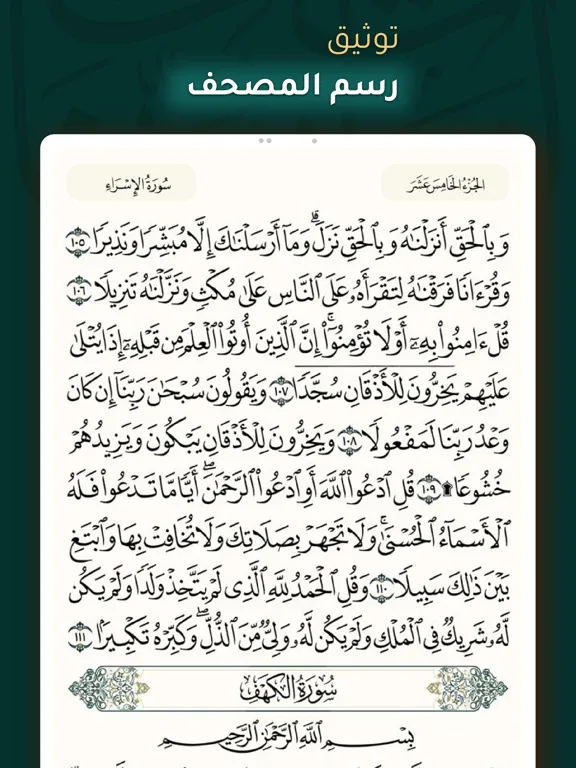 توثيق
رسم المصحف
سُورَةُ الإِسْرَاءِ
الجُزْءُ الخَامِسَ عَشَرَ
وَبِٱلْحَقِّ أَنزَلْنَٰهُ وَبِٱلْحَقِّ نَزَلَۗ وَمَآ أَرْسَلْنَٰكَ إِلَّا مُبَشِّرٗا وَنَذِيرٗا ١٠٥
وَقُرْءَانٗا فَرَقْنَٰهُ لِتَقْرَأَهُۥ عَلَى ٱلنَّاسِ عَلَىٰ مُكْثٖ وَنَزَّلْنَٰهُ تَنزِيلٗا ١٠٦
قُلْ ءَامِنُوا۟ بِهِۦٓ أَوْ لَا تُؤْمِنُوٓا۟ۚ إِنَّ ٱلَّذِينَ أُوتُوا۟ ٱلْعِلْمَ مِن قَبْلِهِۦٓ إِذَا يُتْلَىٰ
عَلَيْهِمْ يَخِرُّونَ لِلْأَذْقَانِ سُجَّدٗا ١٠٧ وَيَقُولُونَ سُبْحَٰنَ رَبِّنَآ إِن كَانَ
وَعْدُ رَبِّنَا لَمَفْعُولٗا ١٠٨ وَيَخِرُّونَ لِلْأَذْقَانِ يَبْكُونَ وَيَزِيدُهُمْ
خُشُوعٗا۩ ١٠٩ قُلِ ٱدْعُوا۟ ٱللَّهَ أَوِ ٱدْعُوا۟ ٱلرَّحْمَٰنَۖ أَيّٗا مَّا تَدْعُوا۟ فَلَهُ
ٱلْأَسْمَآءُ ٱلْحُسْنَىٰۚ وَلَا تَجْهَرْ بِصَلَاتِكَ وَلَا تُخَافِتْ بِهَا وَٱبْتَغِ
بَيْنَ ذَٰلِكَ سَبِيلٗا ١١٠ وَقُلِ ٱلْحَمْدُ لِلَّهِ ٱلَّذِى لَمْ يَتَّخِذْ وَلَدٗا وَلَمْ يَكُن
لَّهُۥ شَرِيكٞ فِى ٱلْمُلْكِ وَلَمْ يَكُن لَّهُۥ وَلِىّٞ مِّنَ ٱلذُّلِّۖ وَكَبِّرْهُ تَكْبِيرَۢا ١١١
سُورَةُ الكَهْفِ
بِسْمِ ٱللَّهِ ٱلرَّحْمَٰنِ ٱلرَّحِيمِ